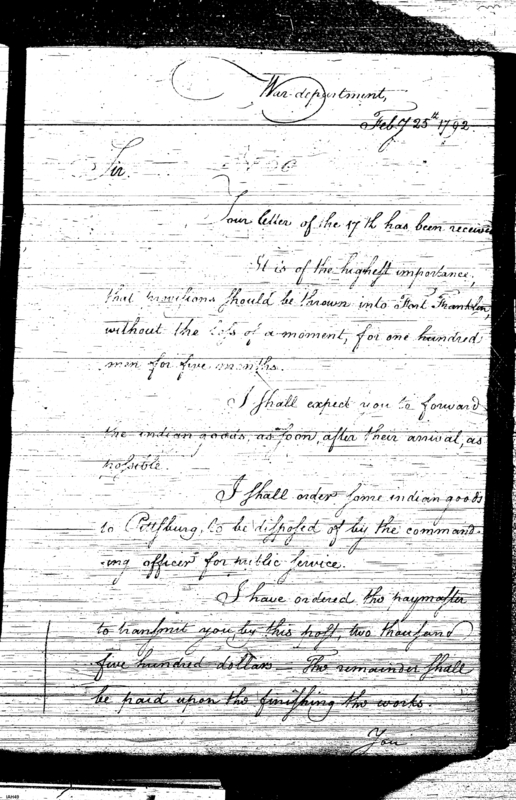 War-department,
Feby 25th 1792.
Sir
Your letter of the 17th has been received
It is of the highest importance,
that provisions should be thrown into Fort Franklin,
without the loss of a moment, for one hundred
men for five months.
I shall expect you to forward
the indian goods, as soon, after their arrival, as
possible.
I shall order some indian goods
to Pittsburg, to be disposed of by the command-
-ing officer for public service.
I have ordered the paymaster
to transmit you, by this post, two thousand
five hundred dollars — The remainder shall
be paid upon the finishing the works.
You